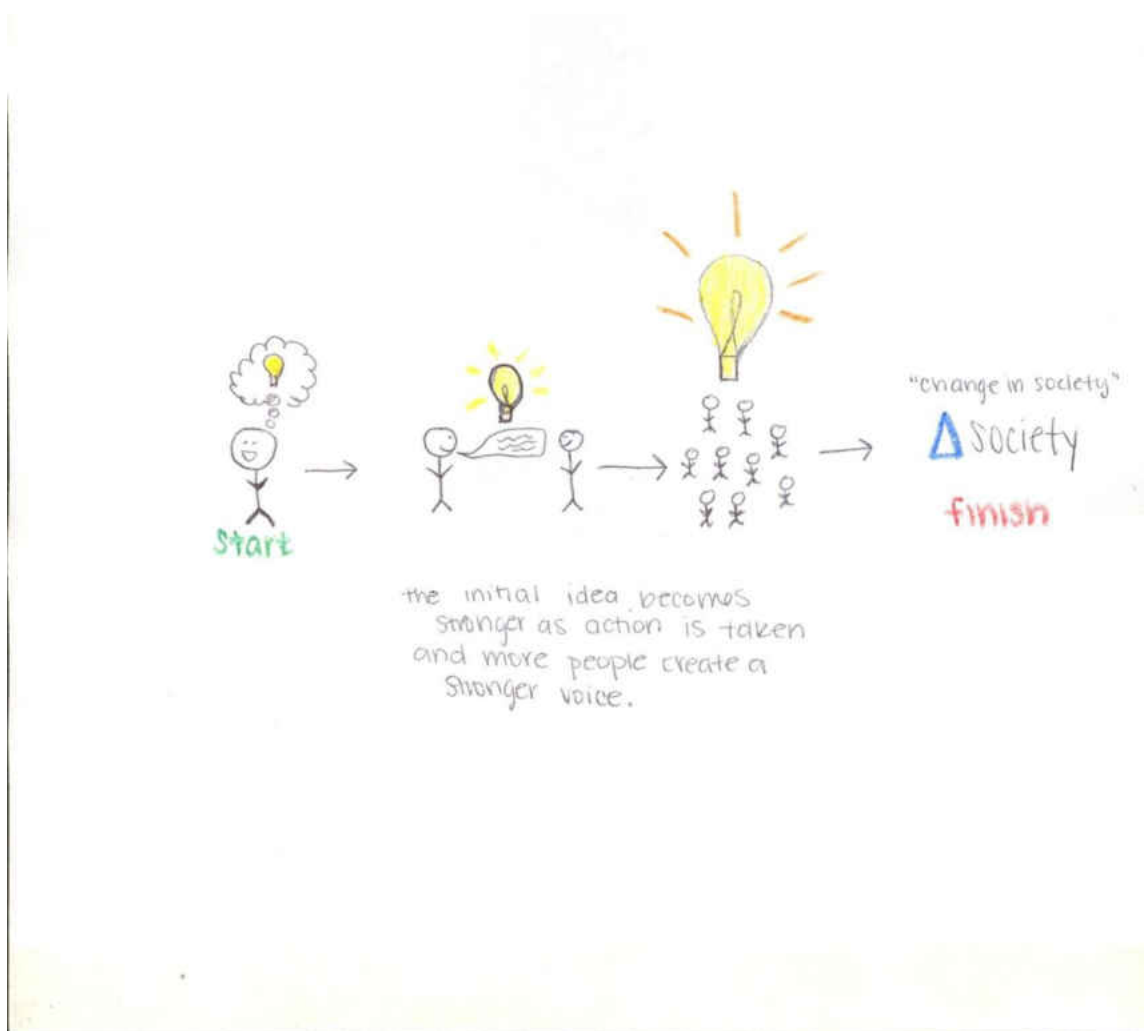 "change in society"
Δ society
start
finish
the initial idea becomes
stronger as action is taken
and more people create a
stronger voice.